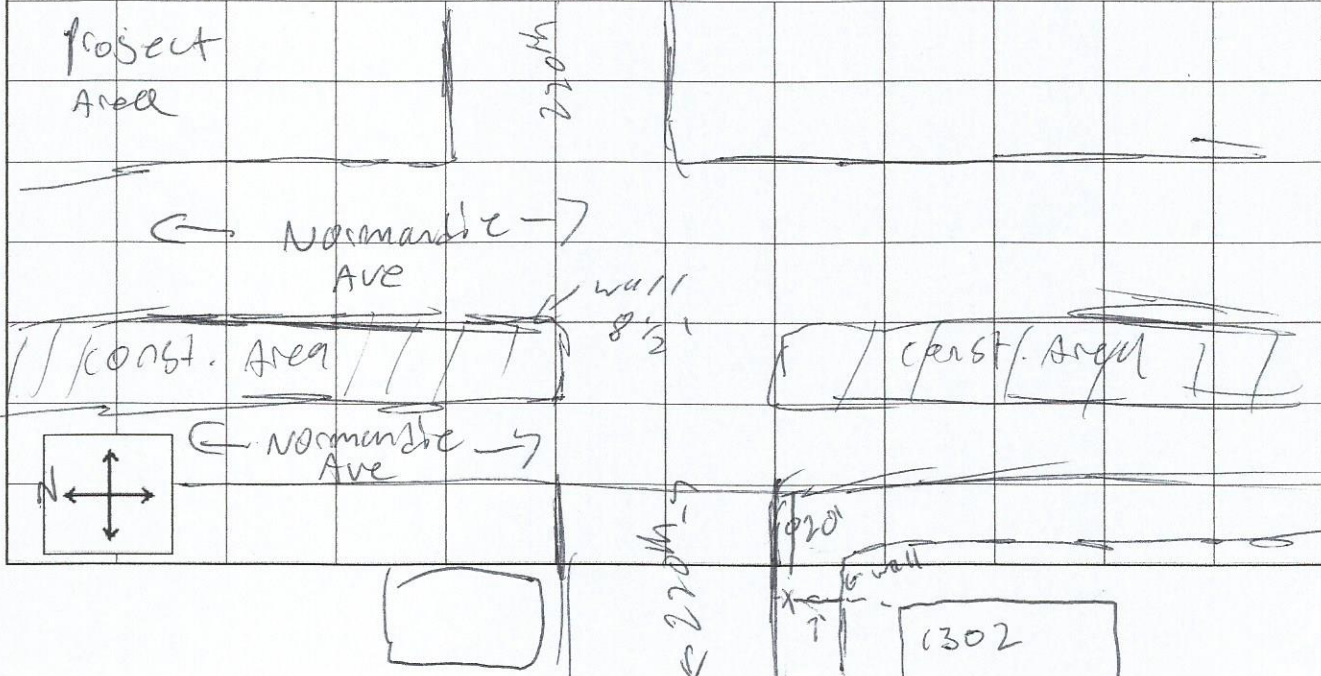 Project
Area
220th
← Normandie →
Ave
wall
8 1/2'
Const. Area
Const. Area
← Normandie →
Ave
N
← 220th →
wall
1302